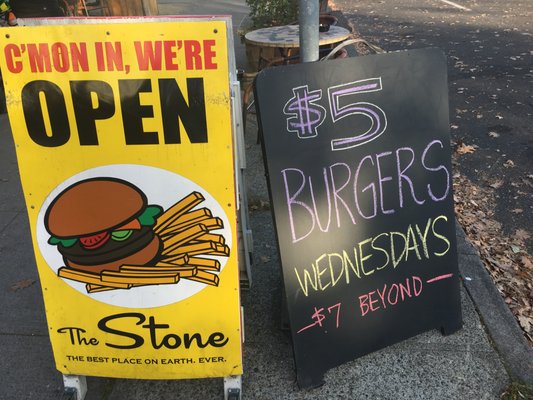 C'MON IN, WE'RE
OPEN
The Stone
THE BEST PLACE ON EARTH. EVER.
$5
BURGERS
WEDNESDAYS
-$7 BEYOND-